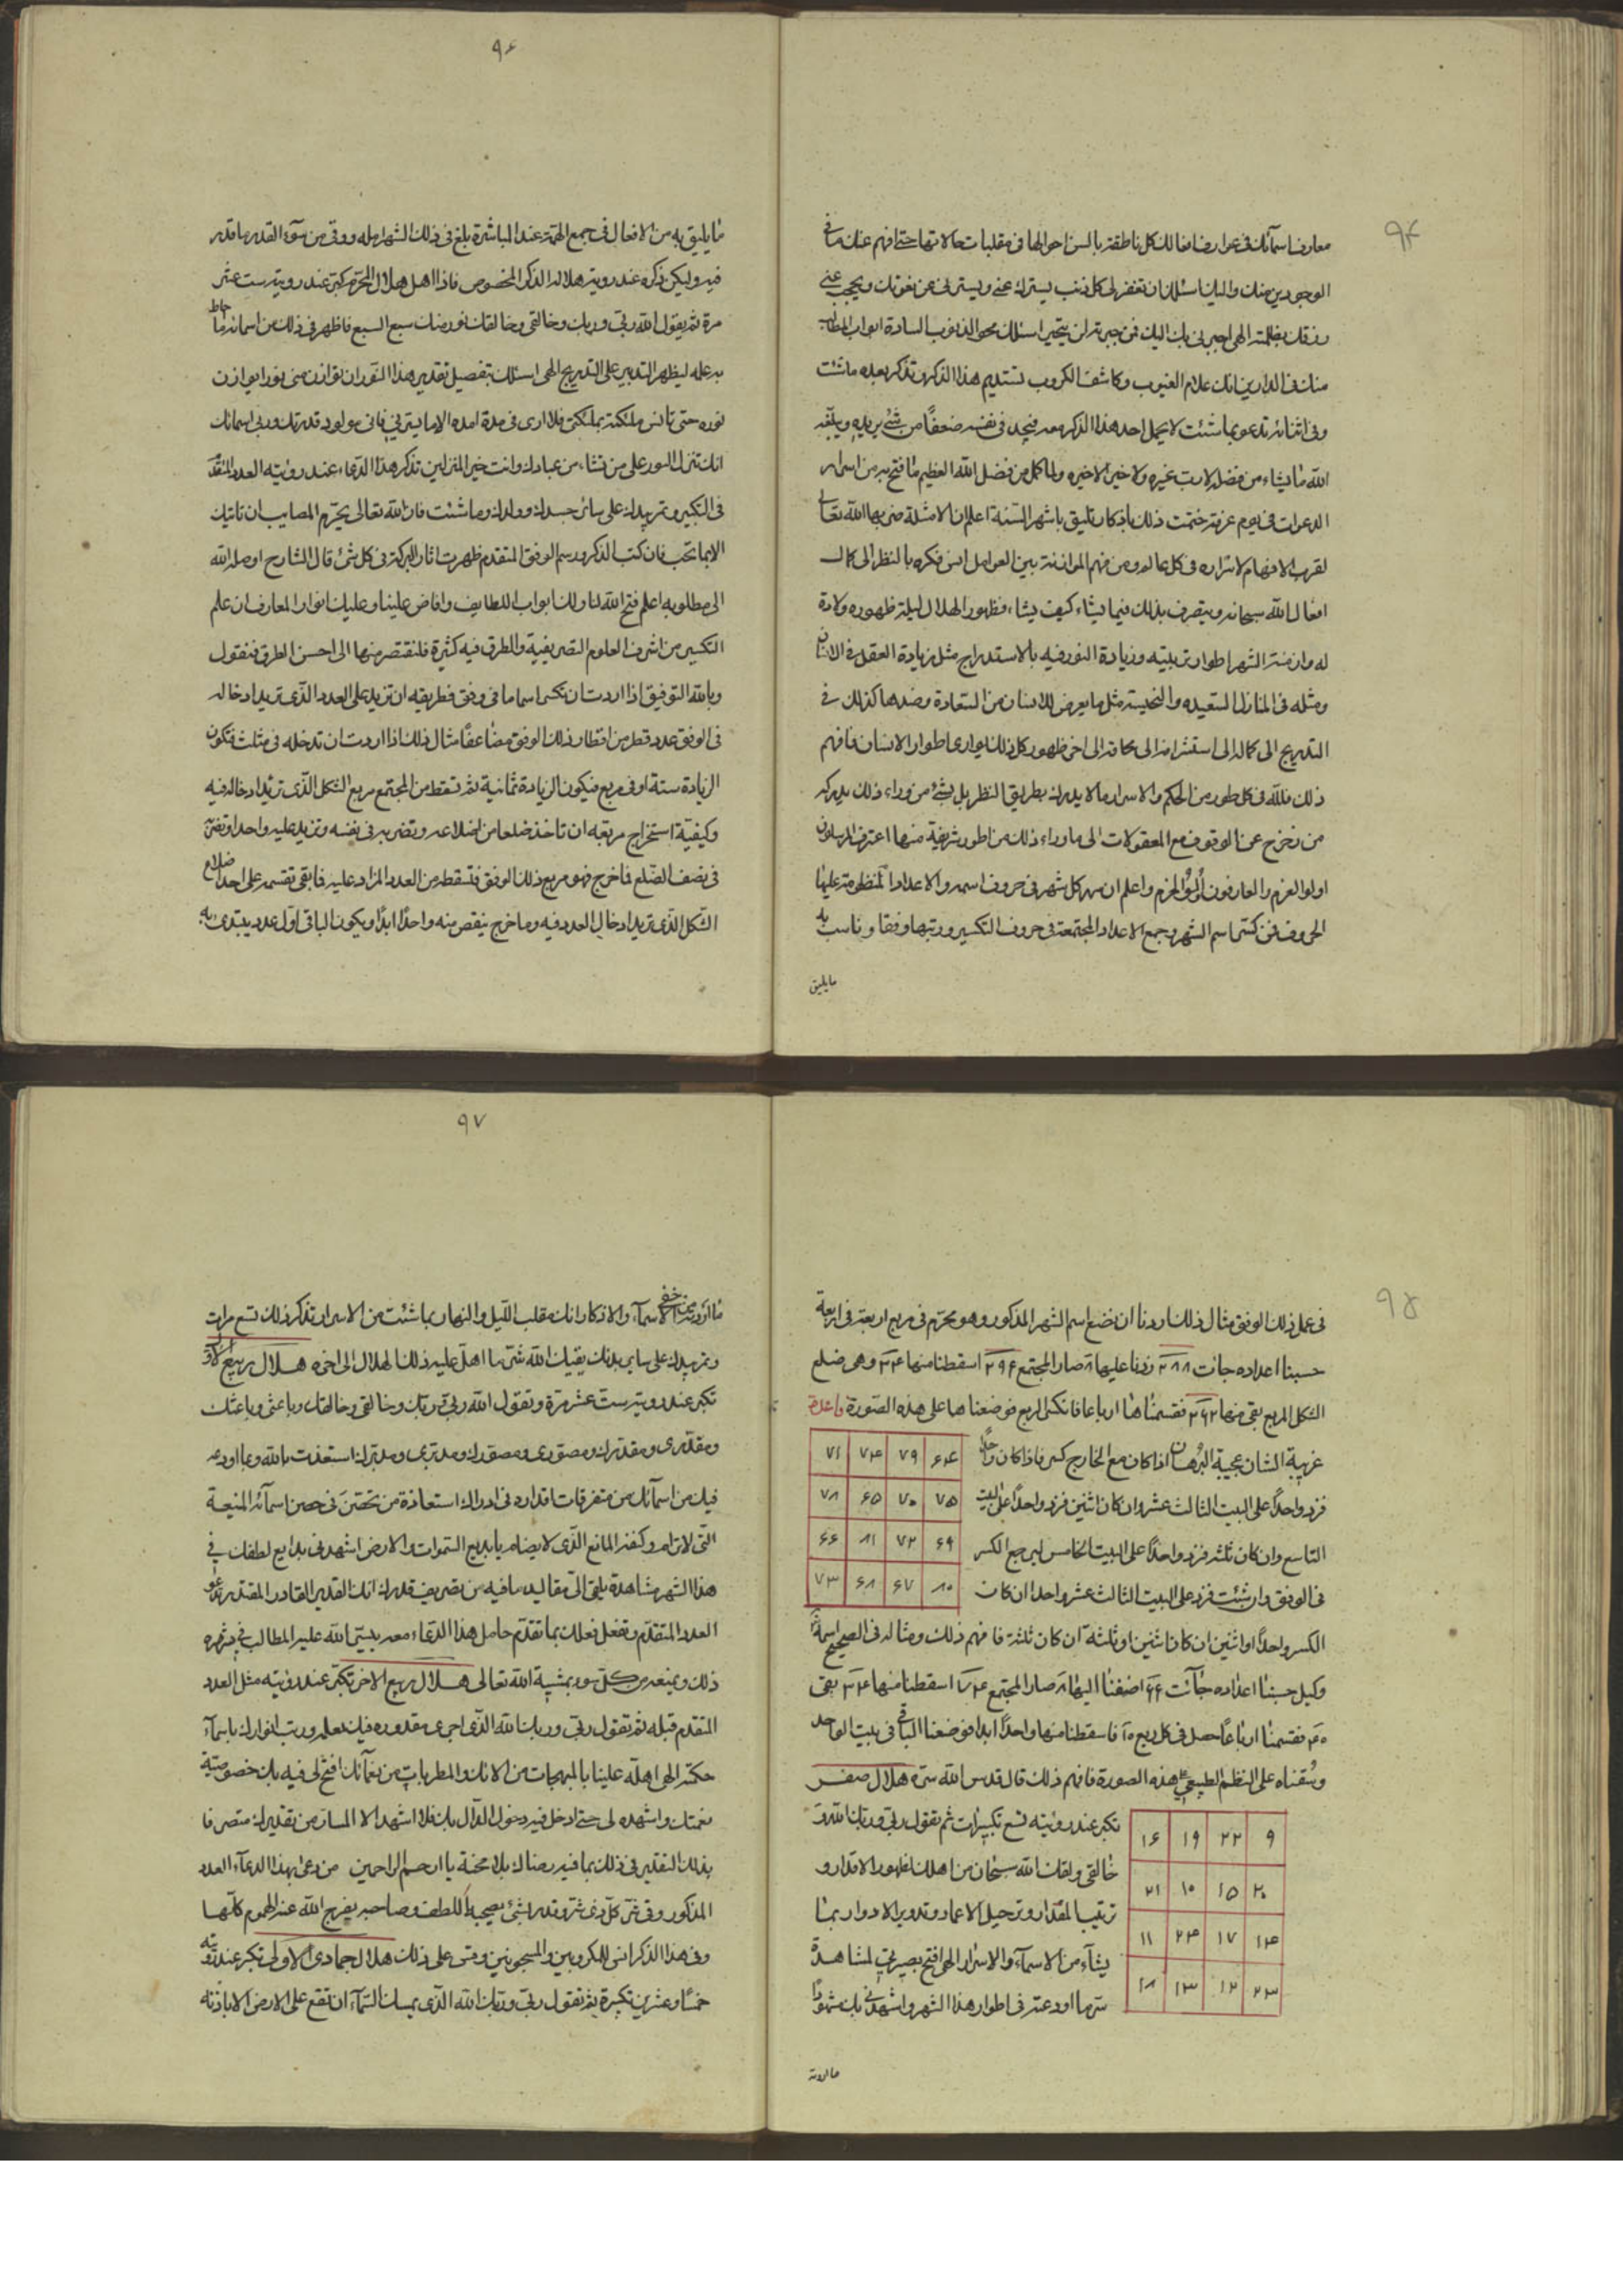 ٩٤
معارف اسمآئك فى عوارضها لك كل ناطقة بالسن احوالها فى مقلبات حالاتها حتى افهم عنك ما فى
الوجودين منك واليك اسئلك ان تغفر لى كل ذنب يسترك عنى ويسترنى عن نعوتك ويحجب عنى
رزقك بظلمته الهى اجبرنى بك اليك فمن جبرته لن يتحير اسئلك محو الذنوب السادة ابواب المطالب
منك فى الدارين انك علام الغيوب وكاشف الكروب تستديم هذا الذكر وتذكر بعده ما شئت
وفى اثنائه تدعو بما شئت لا يحمل احد هذا الذكر معه فيجد فى نفسه ضعفًا من شئ يريده ويبلغه
الله ما يشاء من فضله لا رب غيره ولا خير الا خيره ولما كمل من فضل الله العظيم ما فتح به من اسرار
الدعوات فى يوم عزيز ختمت ذلك باذكار تليق باشهر السنة اعلم ان الامثلة ضربها الله تعالى
لقرب الافهام لاسراره فى كل عالم ومن فهم الموازنة بين العوامل انس فكره بالنظر الى كمال
افعال الله سبحانه ويتصرف بذلك فيما يشاء كيف يشاء فظهور الهلال ليلة ظهوره ولادة
له وازمنة الشهر اطوار تربيته وزيادة النور فيه بالاستدراج مثل زيادة العقل فى الانسان
ومثله فى المنازل السعيده والنحيسة مثل ما يعرض للانسان من السعادة وضدها كذلك فى
التدريج الى كماله الى استشرافه الى محاقه الى اخر ظهور كل ذلك يوارى اطوار الانسان فافهم
ذلك فلله فى كل طور من الحكم والاسرار ما لا يدرك بطريق النظر بل بشئ من وراء ذلك يدركه
من خرج عن الوقوف مع المعقولات الى ما وراء ذلك من اطور شريفة منها اعترف المرسلون
اولوا العزم والعارفون اولوا الحزم واعلم ان سر كل شهر فى حروف اسمه والاعداد المنظومة عليها
الحروف فمن كسر اسم الشهر وجمع الاعداد المجتمعة فى حروف التكسير ورتبها وفقا وناسب به
مايليق
٩۶
ما يليق به من الافعال فى جمع الهمة عند المباشرة بلغ فى ذلك الشهر امله ووقى من سوء القدر ما قدر
فيه وليكن ذكره عند رويته هلاله الذكر المخصوص فاذا اهل هلال المحرم كبر عند رويته ست عشر
مرة ثم يقول الله ربى وربك وخالقى وخالقك نور ضنك سبع السبع فاظهر فى ذلك من اسمائه ما حاط
به علمه ليظهر التدبير على التدريج الهى اسئلك بتفصيل تقدير هذا النور ان توازن منى نورا يوازن
نوره حتى تانس ملئكته بملئكتى فلا ارى فى مدة امده الا ما يسرنى فانى مولود قدرتك وربى اسمائك
انك تنزل السور على من تشاء من عبادك وانت خير المنزلين تذكر هذا الدعاء عند روئيته العدد المتقدم
فى التكبير وتمر يدك على سائر جسدك وولدك وما شئت فان الله تعالى يحرم المصايب ان تاتيك
الا بما تحب فان كتب الذكر ورسم الوفق المتقدم ظهرت اثار البركة فى كل شئ قال الشارح اوصله الله
الى مطلوبه اعلم فتح الله لنا ولك ابواب اللطايف وافاض علينا وعليك انوار المعارف ان علم
التكسير من اشرف العلوم التصريفية والطرق فيه كثيرة فلنقتصر منها الى احسن الطرق فنقول
وبالله التوفيق اذا اردت ان تكسر اسما ما فى وفق فطريقه ان تزيد على العدد الذى تريد ادخاله
فى الوفق عدد قطر من اقطار ذلك الوفق مضاعفًا مثال ذلك اذا اردت ان تدخله فى مثلث فتكون
الزيادة ستة او فى مربع فيكون الزيادة ثمانية ثم تسقط من المجتمع مربع الشكل الذى تريد ادخاله فيه
وكيفية استخراج مربعه ان تاخذ ضلعا من اضلاعه وتضربه فى نفسه وتزيد عليه واحدا وتضربه
فى نصف الضلع فما خرج فهو مربع ذلك الوفق فتسقطه من العدد المزاد عليه فما بقى تقسمه على احد اضلاع
الشكل الذى تريد ادخال العدد فيه وما خرج ينقص منه واحدًا ابدًا ويكون الباقى اول عدد يبتدى به
٩۵
فى عمل ذلك الوفق مثال ذلك اردنا ان نضع اسم الشهر المذكور وهو محرم فى مربع اربعة فى اربعة
حسبنا اعداده جائت ٢٨٨ زدنا عليها ٨ صار المجتمع ٢٩۶ اسقطنا منها ٣٤ وهى ضلع
الشكل المربع بقى منها ٢۶٢ فقسمناها ارباعا فانكسر الربع فوضعناها على هذه الصورة فاعدة
غريبة الشان عجيبة البرهان اذا كان مع الخارج كسر فاذا كان واحدًا
فزد واحدًا على البيت الثالث عشر وان كان اثنين فزد واحدًا على البيت
التاسع وان كان ثلثه فزد واحدًا على البيت الخامس ليرجع الكسر
فى الوفق وان شئت فزد على البيت الثالث عشر واحدا ان كان
۶۴ ٧٩ ٧۴ ٧١
٧۵ ٧٠ ۶۵ ٧٨
۶٩ ٧٢ ٨١ ۶۶
٨٠ ۶٧ ۶٨ ٧٣
الكسر واحدًا او اثنين ان كان اثنين او ثلثة ان كان ثلثة فافهم ذلك ومثاله فى الصحيح اسمه
وكيل حسبنا اعداده جآئت ۶۶ اضفنا اليها ٨ صار المجتمع ٧۴ اسقطنا منها ٣۴ بقى
۴٠ فقسمنا ارباعًا حصل فى كل ربع ١٠ فاسقطنا منها واحدًا ابدا فوضعنا الباقى فى بيت الواحد
وسقناه على النظم الطبيعى على هذه الصورة فافهم ذلك قال قدس الله سره هلال صفر
تكبر عند روئيته تسع تكبيرات ثم يقول ربى وربك الله و
خالقى وخالقك الله سبحان من اهلك لظهور الاقدار و
ترتيب المقدار وترحيل الاعمار وتدوير الادوار بما
يشآء من الاسمآء والاسرار الهى افتح بصيرتى لمشاهدة
سر ما اودعته فى اطوار هذا الشهر واشهدنى بك شهودًا
٩ ٢٢ ١٩ ١۶
٢٠ ١۵ ١٠ ٢١
١۴ ١٧ ٢۴ ١١
٢٣ ١٢ ١٣ ١٨
٩٧
ما اردته من خفى الاسمآء والاذكار انك مقلب الليل والنهار بما شئت من الاسرار تذكر ذلك تسع مرات
وتمر يدك على ساير بدنك يقيك الله شر ما اهل عليه ذلك الهلال الى اخره هلال ربيع الاول
تكبر عند رويته ست عشر مرة وتقول الله ربى وربك وخالقى وخالقك وباعثى وباعثك
ومقدرى ومقدرك ومصورى ومصورك ومدبرى ومدبرك استعذت بالله وبما اودعه
فيك من اسمآئك من متفرقات اقداره فى ادوارك استعاذة من تحصن فى حصن اسمآئه المنيعة
التى لا ترام وكنفه المانع الذى لا يضام يا بديع السموات والارض اشهدنى بدايع لطفك فى
هذا الشهر مشاهدة يلقى الى مقاليد ما فيه من تصريف قدرك انك القدير القادر المقتدر تدعو
العدد المتقدم وتفعل فعلك بما تقدم حامل هذا الدعاء معه ييسر الله عليه المطالب فى شهره
ذلك ويمنعه من كل سوء بمشية الله تعالى هلال ربيع الاخر تكبر عند روئيته مثل العدد
المتقدم قبله ثم تقول ربى وربك الله الذى اجرى مقدوره فيك بعلمه ورتب انوارك باسمآء
حكمته الهى اهله علينا بالمبهجات من الائك والمطربات من نعمآئك افتح لى فيه بك خصوصية
نعمتك واشهده لى حتى ادخل فيه دخول الدال بك فلا اشهد الا المسار من تقديرك متصرفا
بذلك التقدير فى ذلك بما فيه رضاك بلا محنة يا ارحم الراحمين من دعى بهذا الدعآء العدد
المذكور وقى شر كل ذى شر وقدر شئ يصحبه اللطف وصاحبه يفرج الله عنه الهموم كلها
وفى هذا الذكر انس للمكروبين والمسجونين وقس على ذلك هلال جمادى الاولى تكبر عند رويته
خمسًا وعشرين تكبيرة ثم تقول ربى وربك الله الذى يمسك السمآء ان تقع على الارض الا باذنه